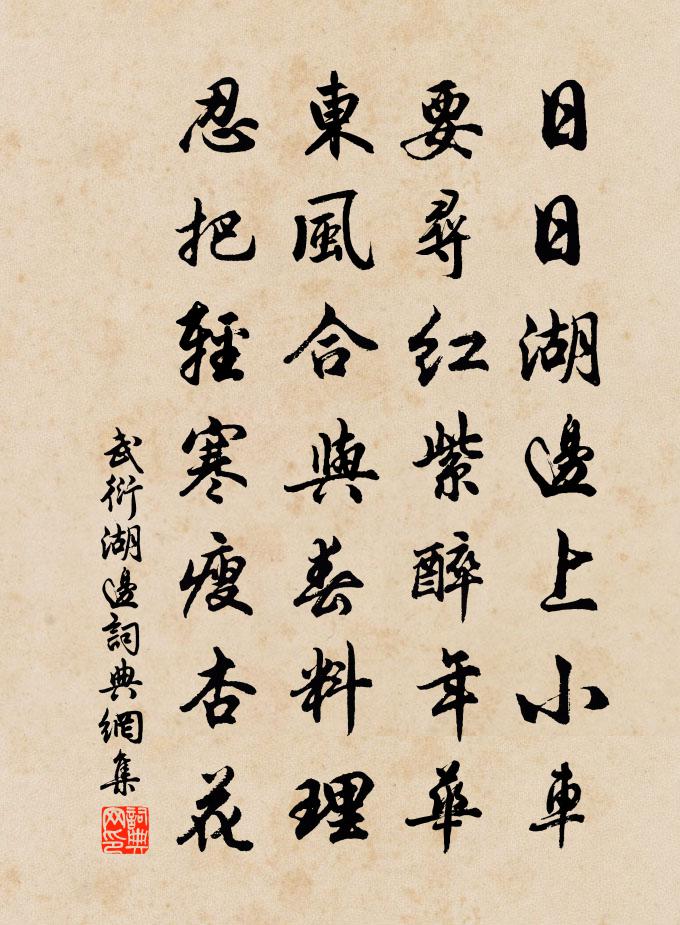 日日湖邊上小車
要尋紅紫醉年華
東風合與春料理
忍把輕寒瘦杏花
武衍湖邊詞典網集
詞典網印